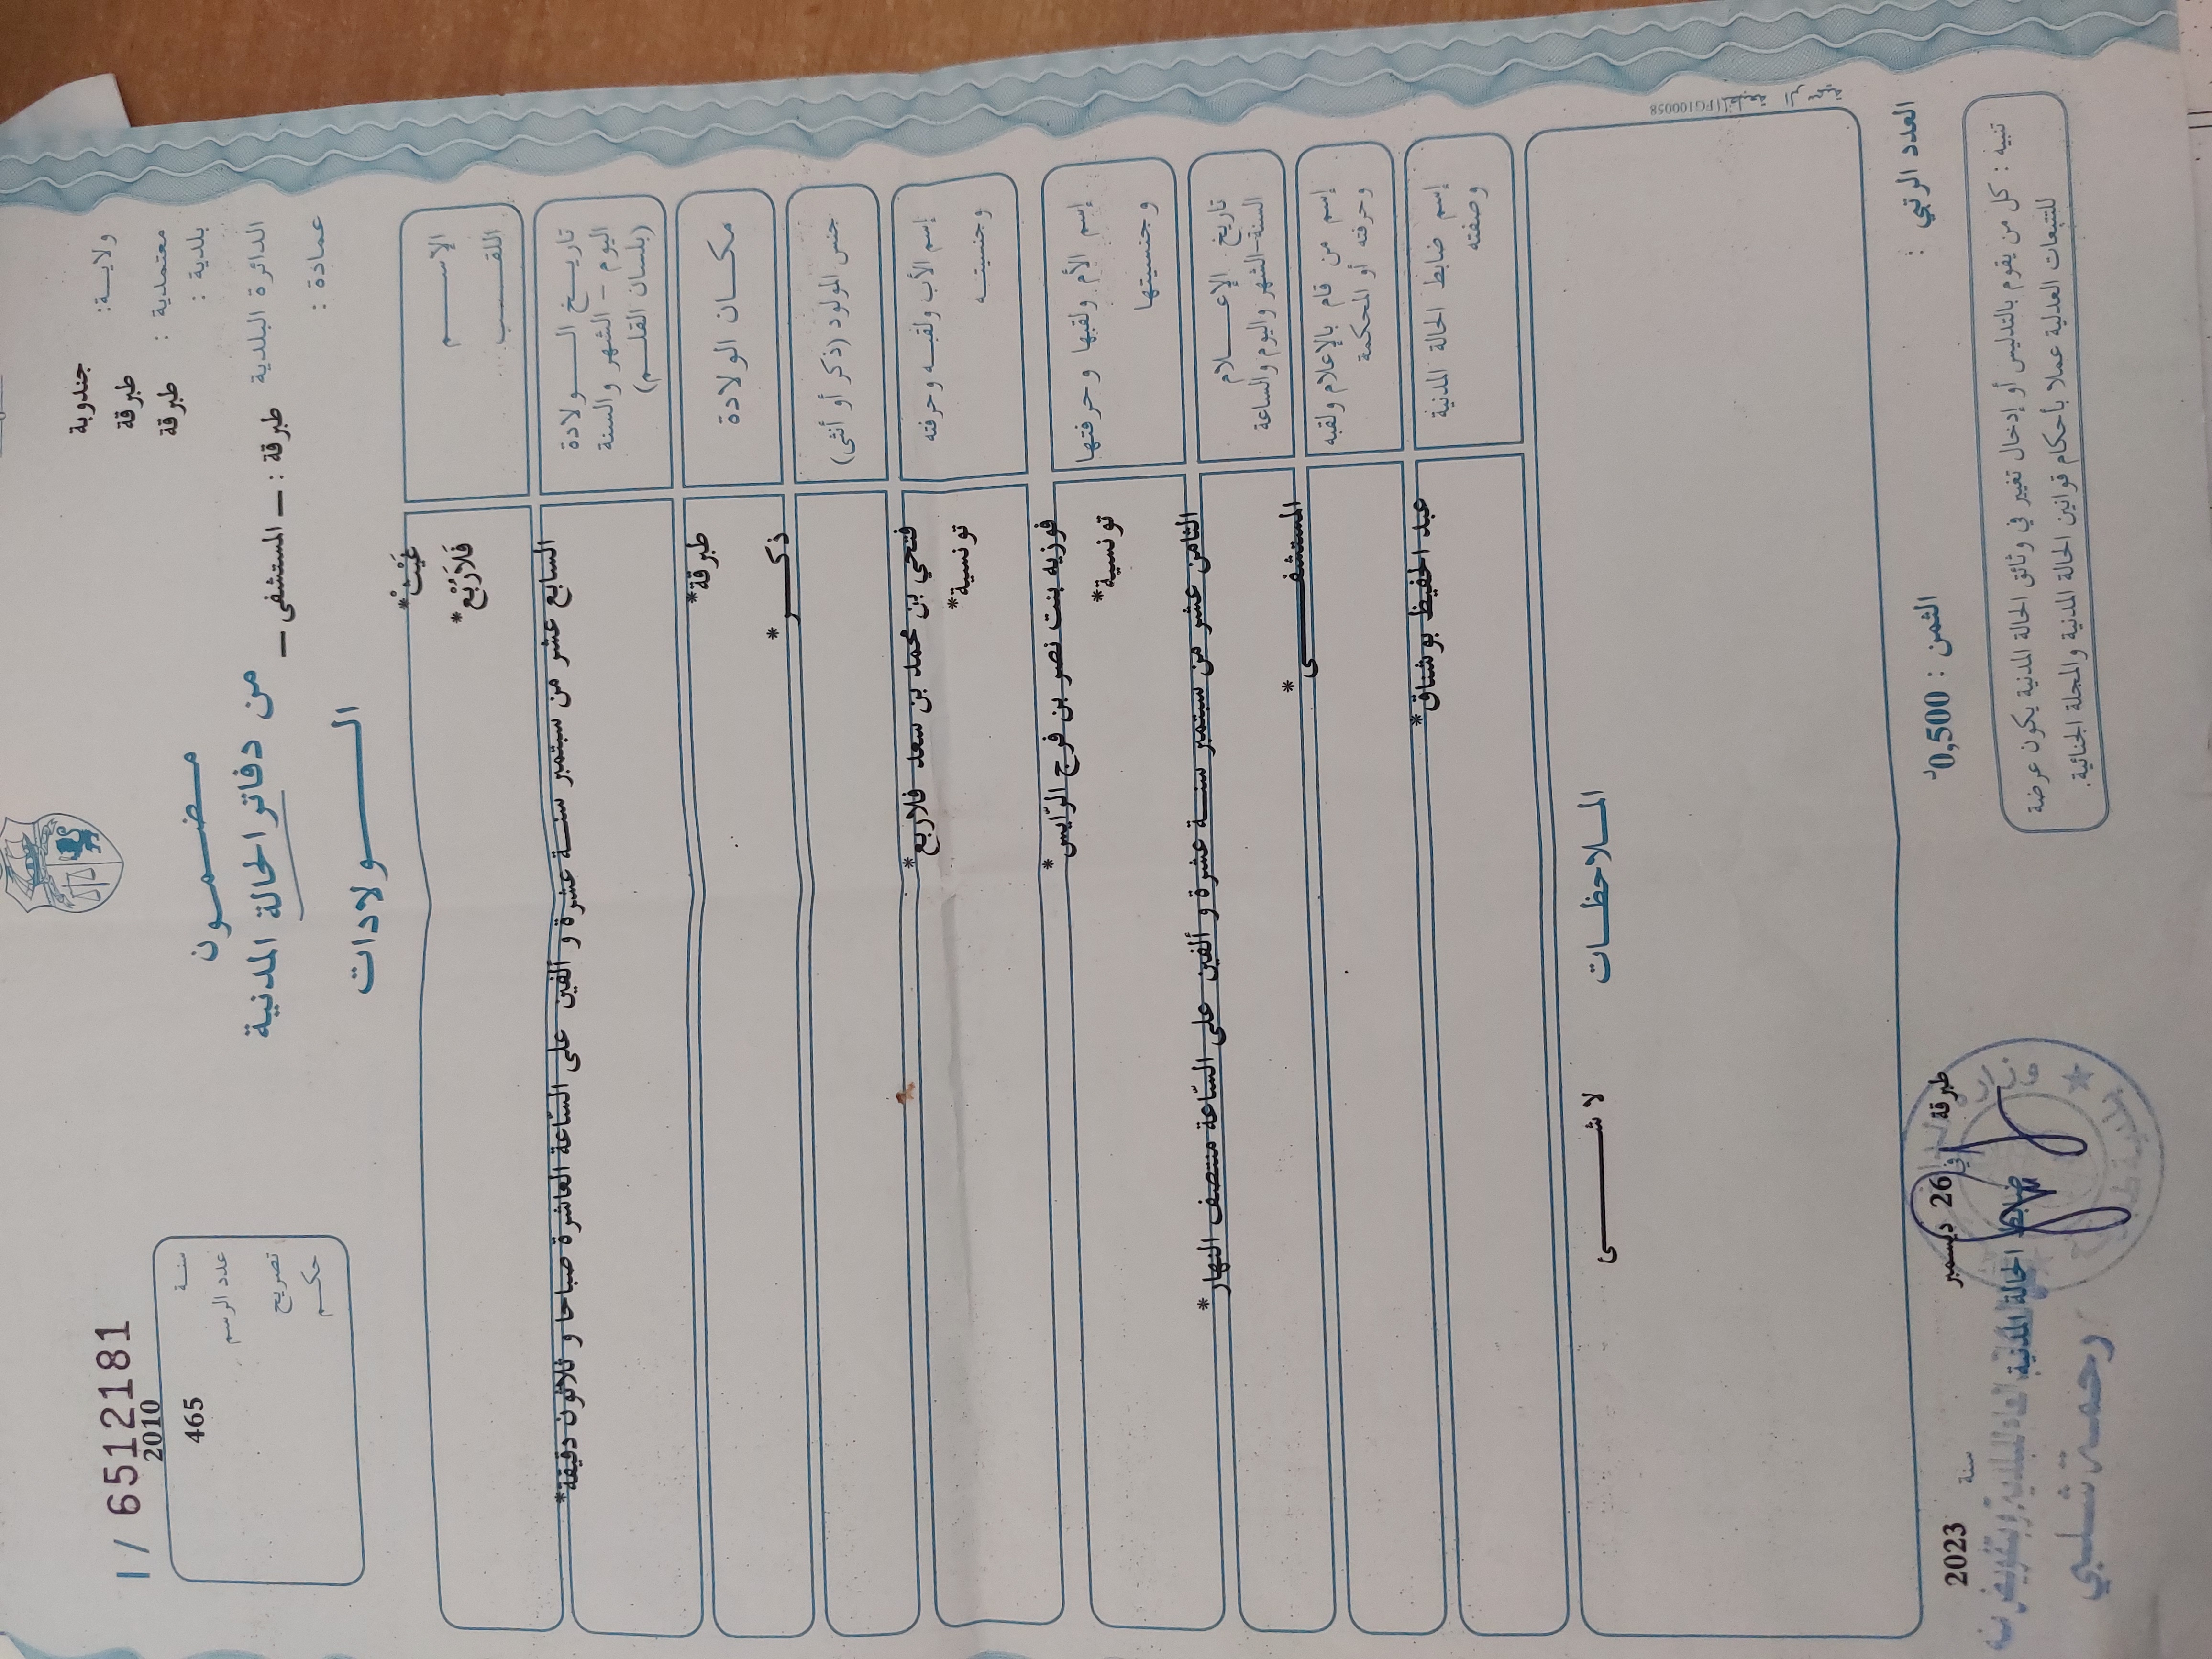 ولايـــة: جندوبة
معتمدية : طبرقة
بلدية : طبرقة
الدائرة البلدية طبرقة : — المستشفى —
عمادة :
مضـــمـــون
من دفاتر الحالة المدنية
الـــــولادات
I / 6512181
سنـــة 2010
عدد الرسم 465
تصريح
حكـــم
الإســـــم غَيْثْ*
اللقـــــب فَلاَرْبَع*
تاريـــخ الـــــولادة
اليوم - الشهر والسنة
(بلسان القلـــم)
السابع عشر من سبتمبر سنـــة عشرة و ألفين على السّاعة العاشرة صباحا و ثلاثون دقيقة*
مكـــان الولادة طبرقة*
جنس المولود (ذكر أو أنثى) ذكـــــر*
إسم الأب ولقبـــه وحرفته فتحي بن محمد بن سعد فلاربع*
وجنسيتـــه تونسية*
إسم الأم ولقبها وحرفتها فوزيه بنت نصر بن فرج الرّايس*
وجنسيتها تونسية*
تاريخ الإعـــــلام
السنة-الشهر واليوم والساعة
الثامن عشر من سبتمبر سنـــة عشرة و ألفين على السّاعة منتصف النهار*
إسم من قام بالإعلام ولقبه المستشفـــــى*
وحرفته أو المحكمة
إسم ضابط الحالة المدنية عبد الحفيظ بوشناق*
وصفته
FG100058
الملاحظـــات
لا شـــــئ
العدد الرتبي :
الثمن : 0,500د
طبرقة في 26 ديسمبر سنة 2023
ضابط الحالة المدنية
رحمة شلبي
تنبيه : كل من يقوم بالتدليس أو إدخال تغيير في وثائق الحالة المدنية يكون عرضة
للتتبعات العدلية عملا بأحكام قوانين الحالة المدنية والمجلة الجنائية.